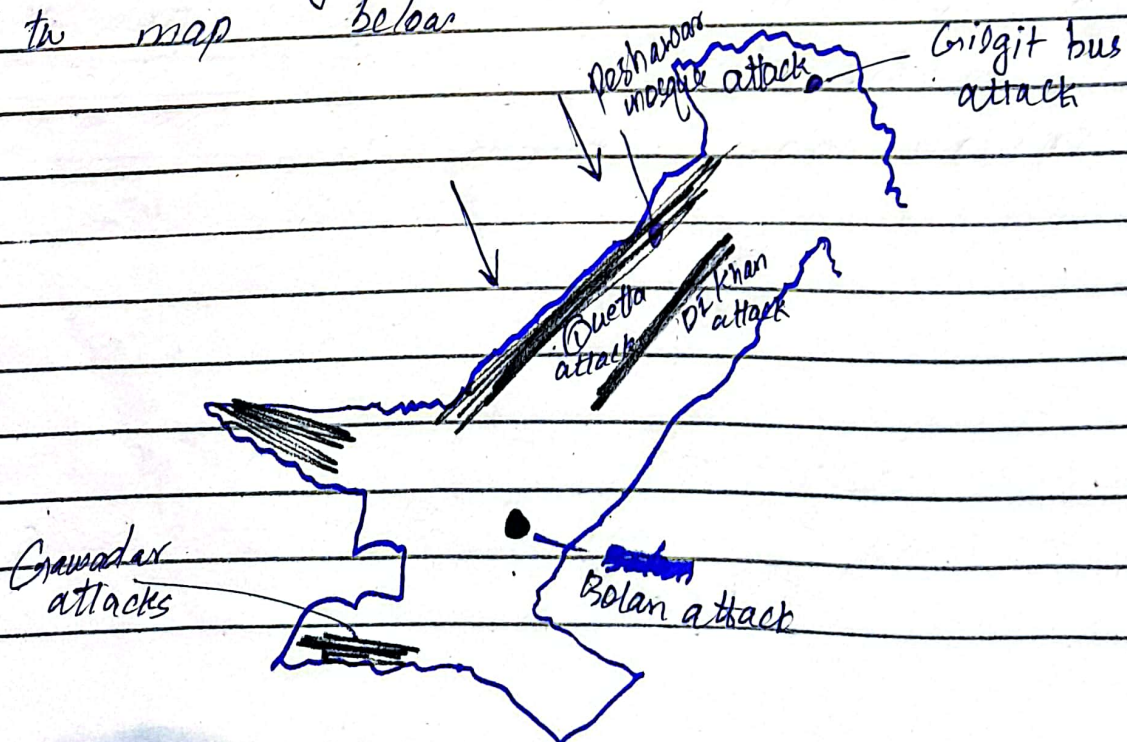 the map below
Peshawar
mosque attack
Gilgit bus
attack
Quetta
attack
DI Khan
attack
Gawadar
attacks
Bolan attack